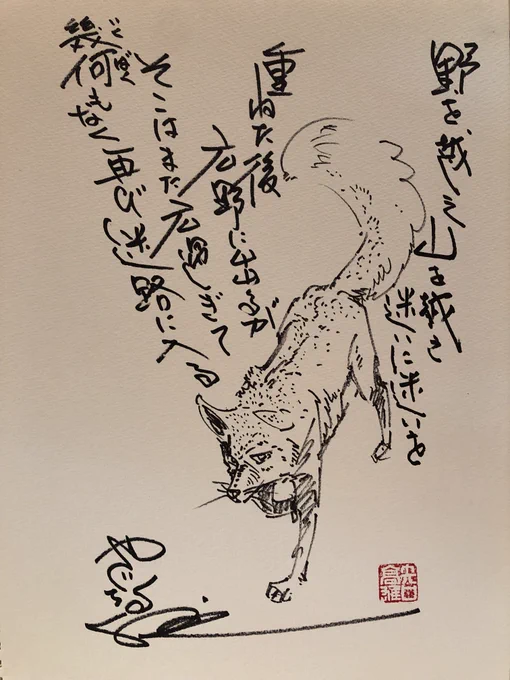 野を、越え山を越え
迷いに迷いを
重ねた後
広野に出るが
そこはまた広過ぎて
幾何もなく再び迷路に入る
矢口
高雄